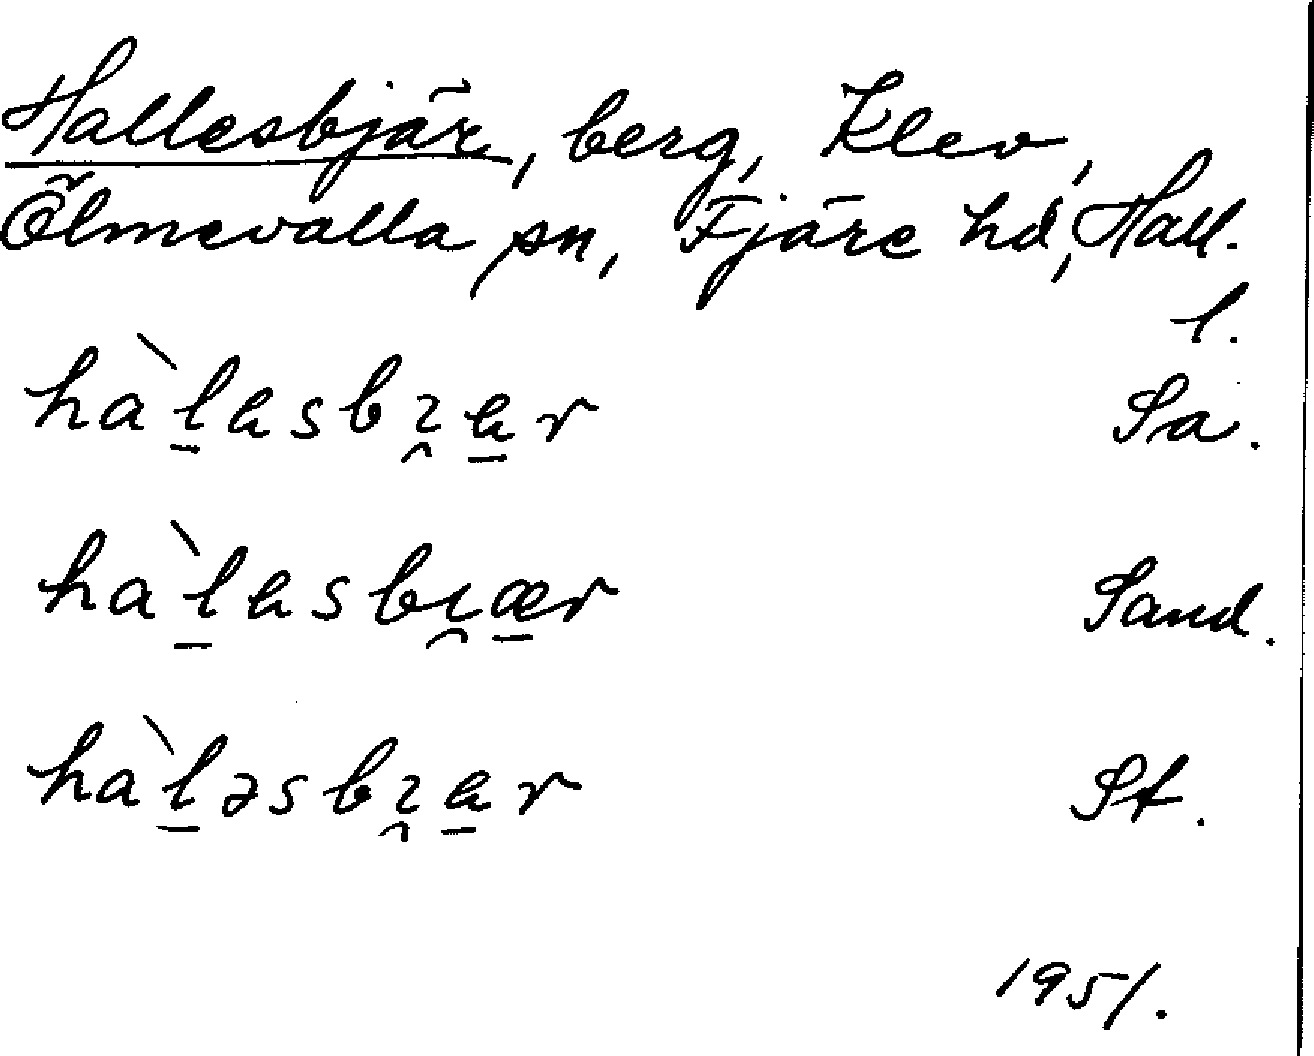 Hallesbjär, berg, Klev,
Ölmevalla sn, Fjäre hd, Hall.
l.
hàl̠asbɿ̯a̠r Sa.
hàl̠asbɿ̯æ̠r Sand.
hàl̠əsbɿ̯a̠r St.
1951.